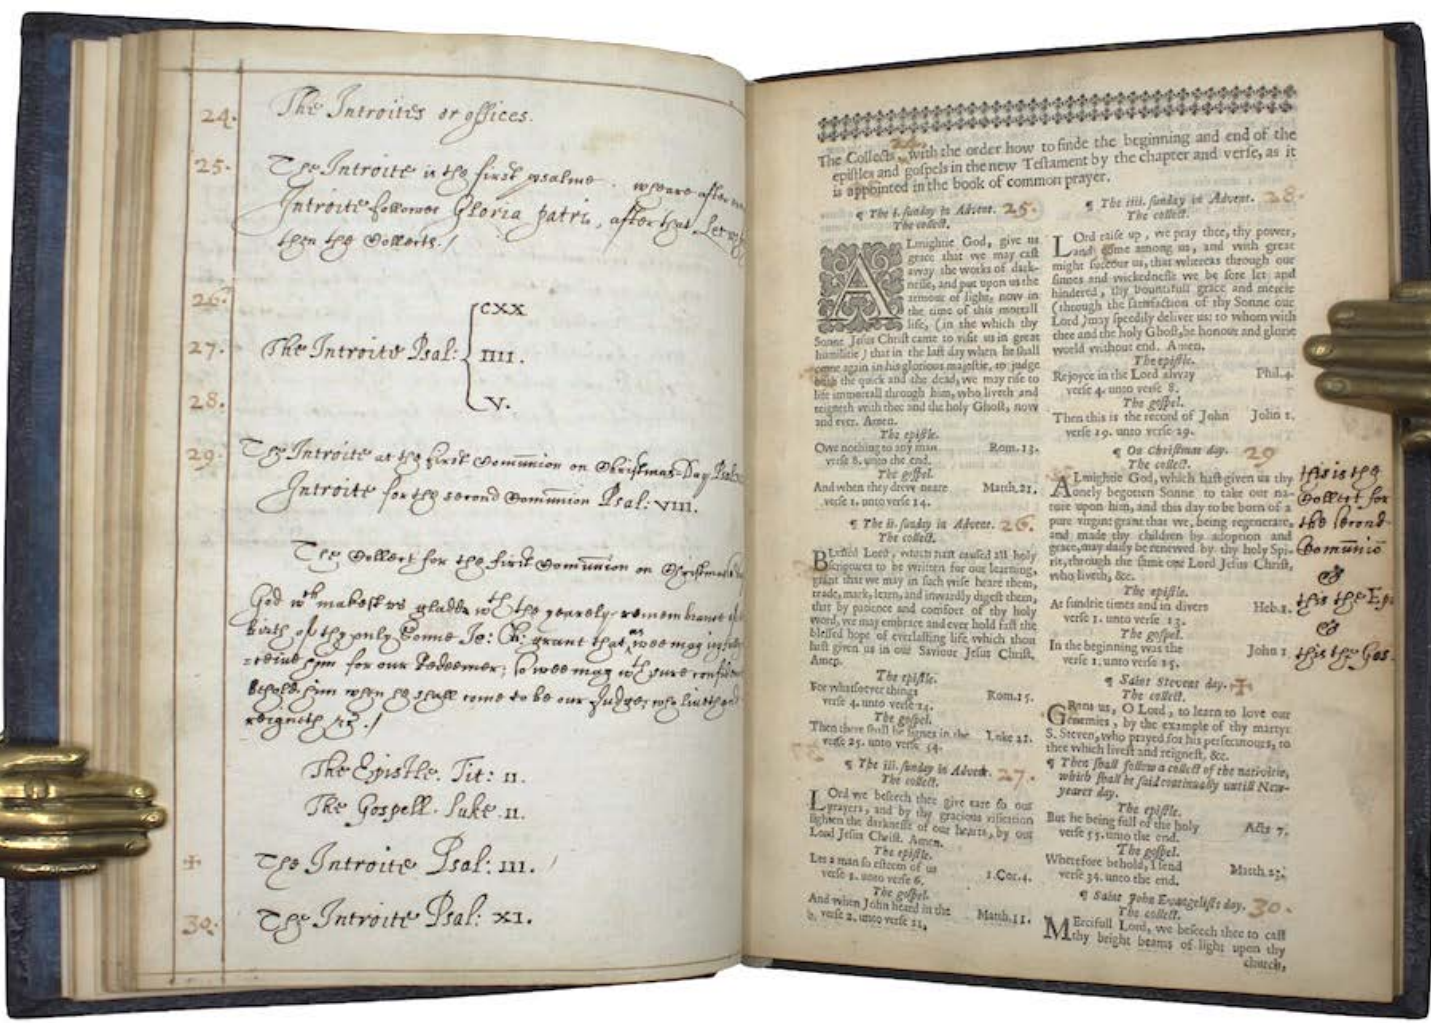 24. The Introites or offices.
25. The Introite is the first psalme. wheare after
Introite followes Gloria patri, after that Let us
then the Collects./
26.
CXX
27. The Introite Psal: IIII.
28. V.
29. The Introite at the first Communion on Christmas-Day Psal:
Introite for the second Communion Psal: VIII.
The Collect for the first Communion on Christmas
God wch makest us gladde wth the yearely remembrance of
birth of thy only Sonne Je: Ch: grant that as wee may
=ceive him for our Redeemer; so wee may wth sure
behold him when he shall come to be our Judge, who liveth and
reigneth &c./
The Epistle. Tit: II.
The Gospell. Luke. II.
✠ The Introite Psal: III.
30. The Introite Psal: XI.
24.
The Collects, with the order how to finde the beginning and end of the
epistles and gospels in the new Testament by the chapter and verse, as it
is appointed in the book of common prayer.
¶ The i. sunday in Advent. 25.
The collect.
ALmightie God, give us
grace that we may cast
away the works of dark-
nesse, and put upon us the
armour of light, now in
the time of this mortall
life, (in the which thy
Sonne Jesus Christ came to visit us in great
humilitie) that in the last day when he shall
come again in his glorious majestie, to judge
both the quick and the dead, we may rise to
life immortall through him, who liveth and
reigneth with thee and the holy Ghost, now
and ever. Amen.
The epistle.
Owe nothing to any man Rom. 13.
verse 8. unto the end.
The gospel.
And when they drew neare Matth. 21.
verse 1. unto verse 14.
¶ The ii. sunday in Advent. 26.
The collect.
BLessed Lord, which hast caused all holy
Scriptures to be written for our learning,
grant that we may in such wise heare them,
reade, mark, learn, and inwardly digest them,
that by patience and comfort of thy holy
word, we may embrace and ever hold fast the
blessed hope of everlasting life, which thou
hast given us in our Saviour Jesus Christ.
Amen.
The epistle.
For whatsoever things Rom. 15.
verse 4. unto verse 14.
The gospel.
Then there shall be signes in the Luke 21.
verse 25. unto verse 34.
¶ The iii. sunday in Advent. 27.
The collect.
LOrd we beseech thee give eare to our
prayers, and by thy gracious visitation
lighten the darknesse of our hearts, by our
Lord Jesus Christ. Amen.
The epistle.
Let a man so esteem of us 1. Cor. 4.
verse 1. unto verse 6.
The gospel.
And when John heard in the Matth. 11.
verse 2. unto verse 11,
¶ The iiii. sunday in Advent. 28.
The collect.
LOrd raise up, we pray thee, thy power,
and come among us, and with great
might succour us, that whereas through our
sinnes and wickednesse we be sore let and
hindered, thy bountifull grace and mercie
(through the satisfaction of thy Sonne our
Lord) may speedily deliver us: to whom with
thee and the holy Ghost, be honour and glorie
world without end. Amen.
The epistle.
Rejoyce in the Lord alway Phil. 4.
verse 4. unto verse 8.
The gospel.
Then this is the record of John John 1.
verse 19. unto verse 29.
¶ On Christmas day. 29
The collect.
ALmightie God, which hast given us thy
onely begotten Sonne to take our na-
ture upon him, and this day to be born of a
pure virgin; grant that we, being regenerate,
and made thy children by adoption and
grace, may daily be renewed by thy holy Spi-
rit, through the same our Lord Jesus Christ,
who liveth, &c.
The epistle.
At sundrie times and in divers Heb. 1.
verse 1. unto verse 13.
The gospel.
In the beginning was the John 1
verse 1. unto verse 15.
¶ Saint Stevens day. ✠
The collect.
GRant us, O Lord, to learn to love our
enemies, by the example of thy martyr
S. Steven, who prayed for his persecutours, to
thee which livest and reignest, &c.
¶ Then shall follow a collect of the nativitie,
which shall be said continually untill New-
yeares day.
The epistle.
But he being full of the holy Acts 7.
verse 55. unto the end.
The gospel.
Wherefore behold, I send Matth. 23.
verse 34. unto the end.
¶ Saint John Evangelists day. 30.
The collect.
MErcifull Lord, we beseech thee to cast
thy bright beams of light upon thy
church,
this is the
Collect for
the second
Communiō
&
this the Epi
&
this the Gos.